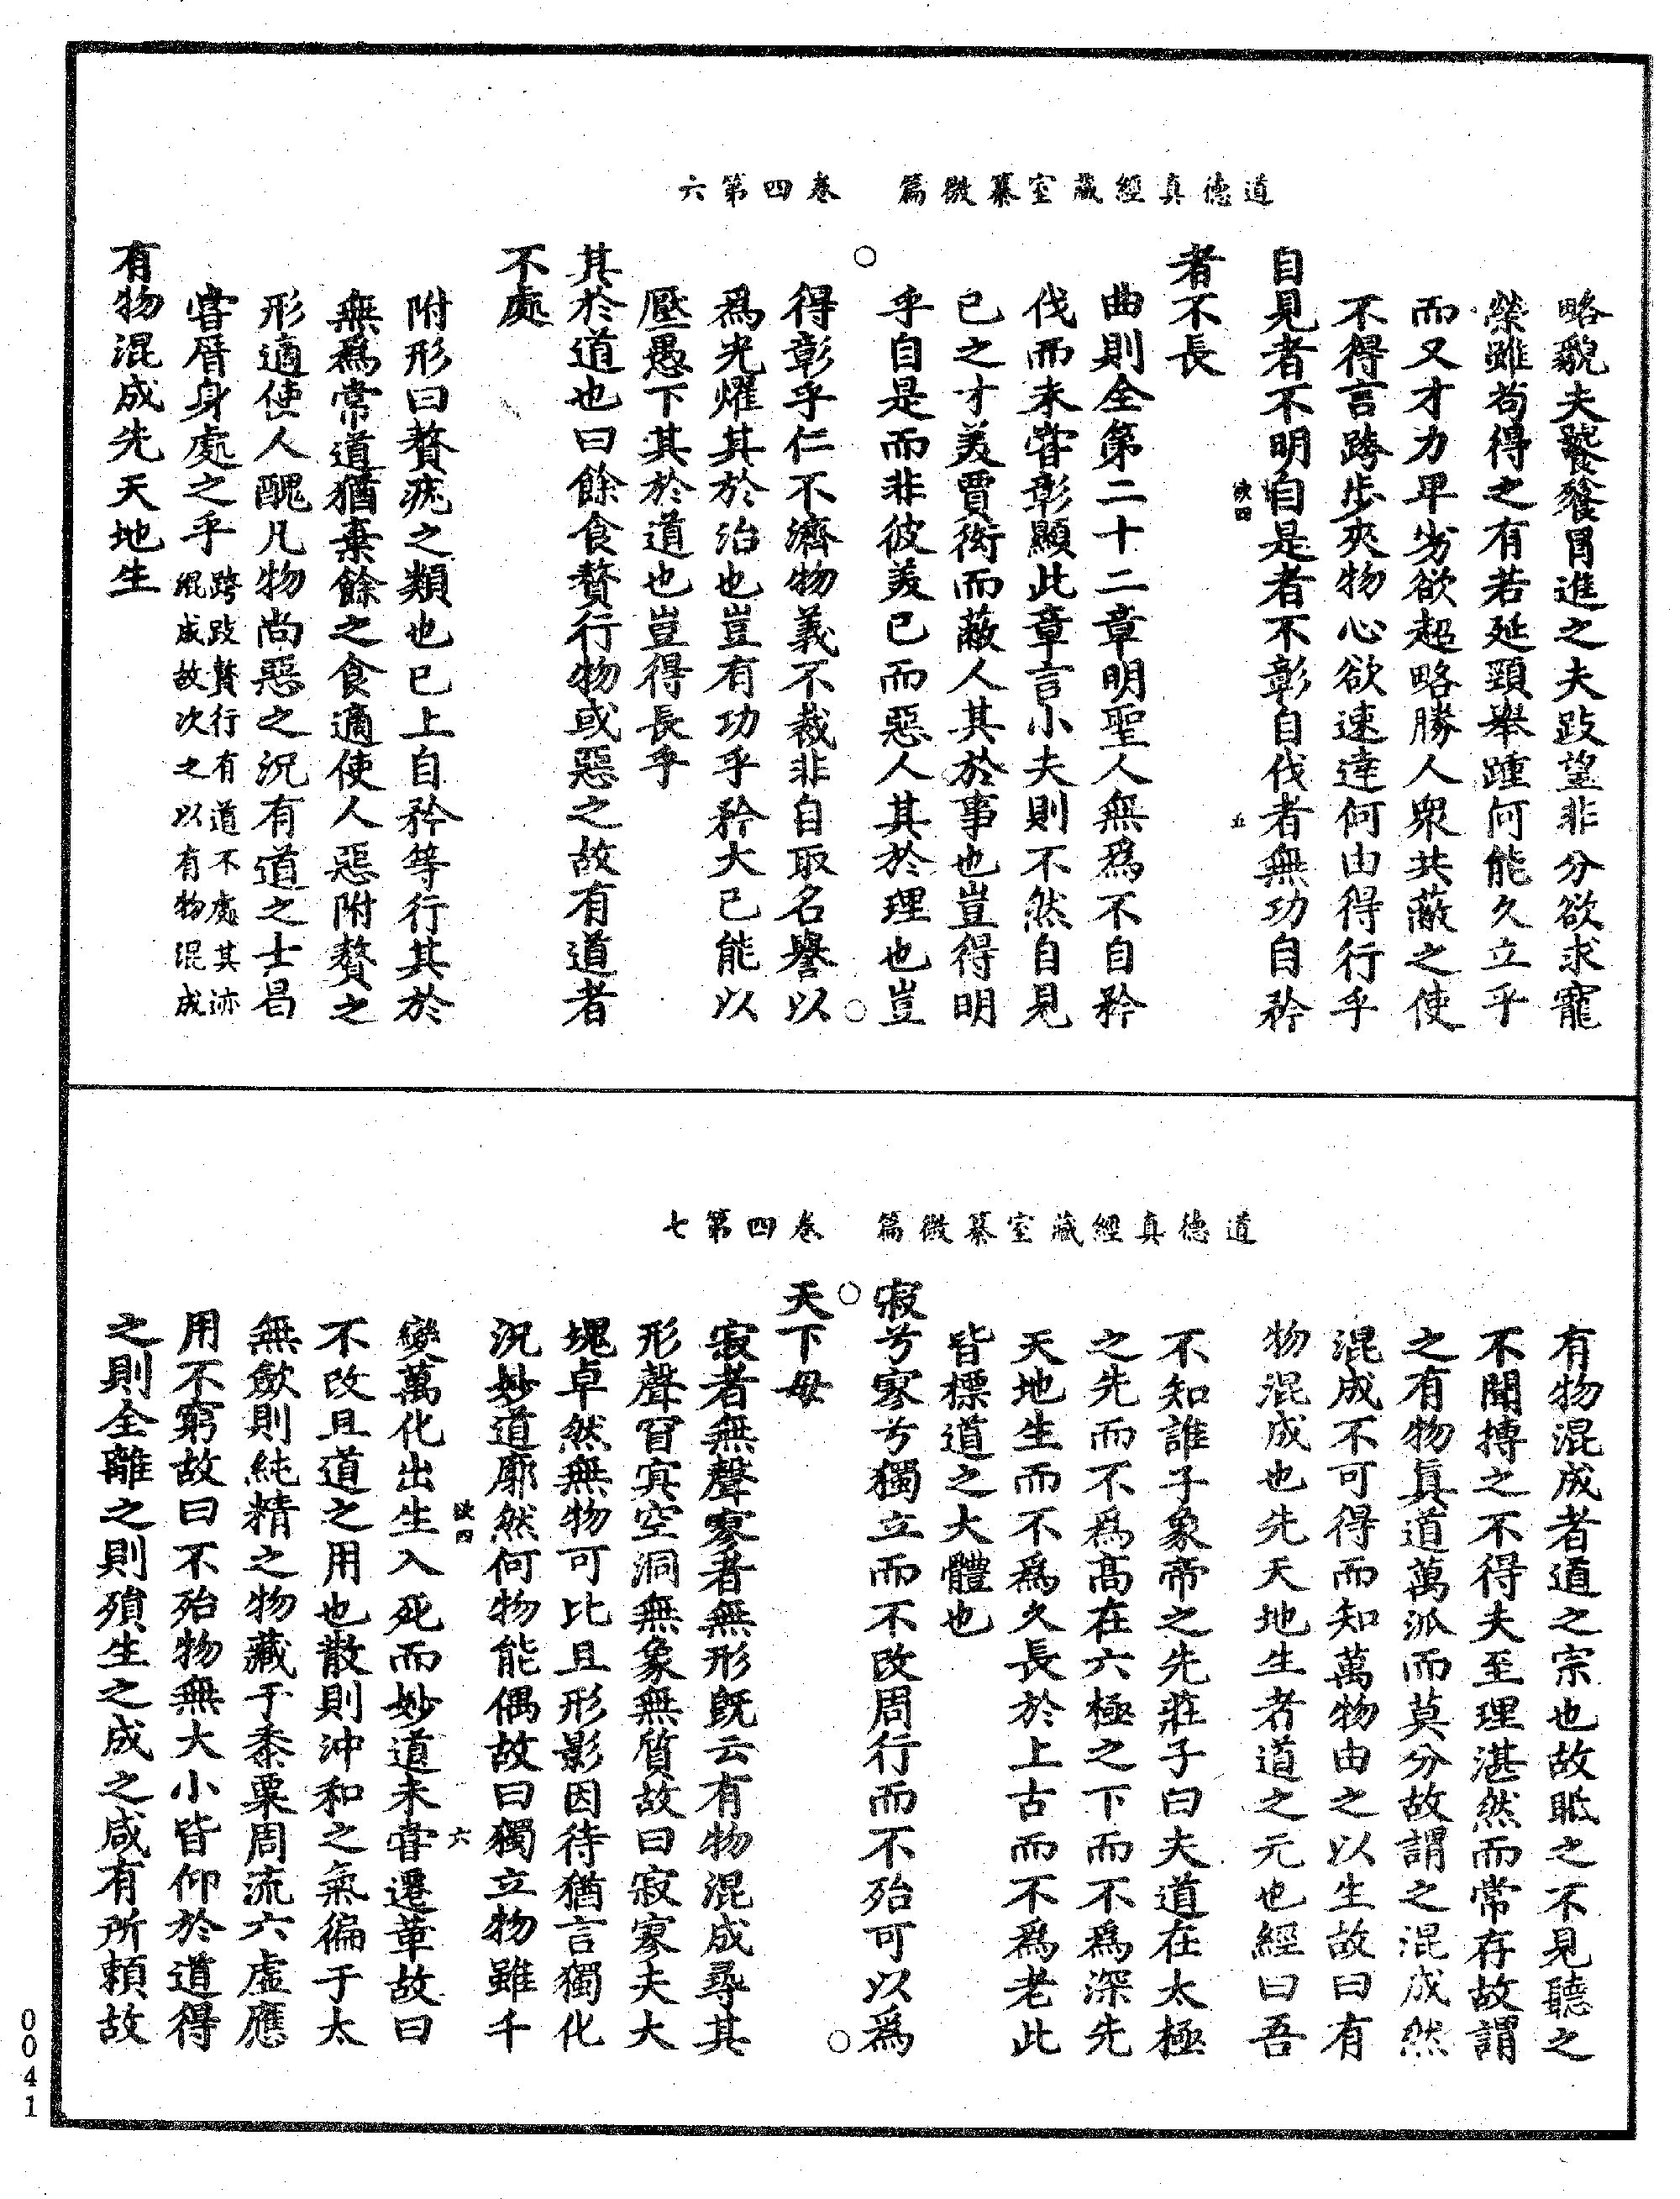 道德真經藏室纂微篇　卷四第六
略貌夫饕餮冒進之夫跂望非分欲求寵
榮雖苟得之有若延頸舉踵何能久立乎
而又才力卑劣欲超略勝人衆共蔽之使
不得言跨步夾物心欲速達何由得行乎
自見者不明自是者不彰自伐者無功自矜
欲四　五
者不長
曲則全第二十二章明聖人無爲不自矜
伐而未甞彰顯此章言小夫則不然自見
已之才美賈衒而蔽人其於事也豈得明
乎自是而非彼美已而惡人其於理也豈
得彰乎仁不濟物義不裁非自取名譽以
爲光燿其於治也豈有功乎矜大已能以
壓愚下其於道也豈得長乎
其於道也曰餘食贅行物或惡之故有道者
不處
附形曰贅疣之類也已上自矜等行其於
無爲常道猶棄餘之食適使人惡附贅之
形適使人醜凡物尚惡之況有道之士曷
甞屑身處之乎跨跂贅行有道不處其迹
混成故次之以有物混成
有物混成先天地生
道德真經藏室纂微篇　卷四第七
有物混成者道之宗也故眡之不見聽之
不聞摶之不得夫至理湛然而常存故謂
之有物真道萬派而莫分故謂之混成然
混成不可得而知萬物由之以生故曰有
物混成也先天地生者道之元也經曰吾
不知誰子象帝之先莊子曰夫道在太極
之先而不爲高在六極之下而不爲深先
天地生而不爲久長於上古而不爲老此
皆標道之大體也
寂兮寥兮獨立而不改周行而不殆可以爲
天下母
寂者無聲寥者無形旣云有物混成尋其
形聲窅冥空洞無象無質故曰寂寥夫大
塊卓然無物可比且形影因待猶言獨化
況妙道廓然何物能偶故曰獨立物雖千
欲四　六
變萬化出生入死而妙道未甞遷革故曰
不改且道之用也散則沖和之氣徧于太
無斂則純精之物藏于黍粟周流六虛應
用不窮故曰不殆物無大小皆仰於道得
之則全離之則殞生之成之咸有所賴故
0041